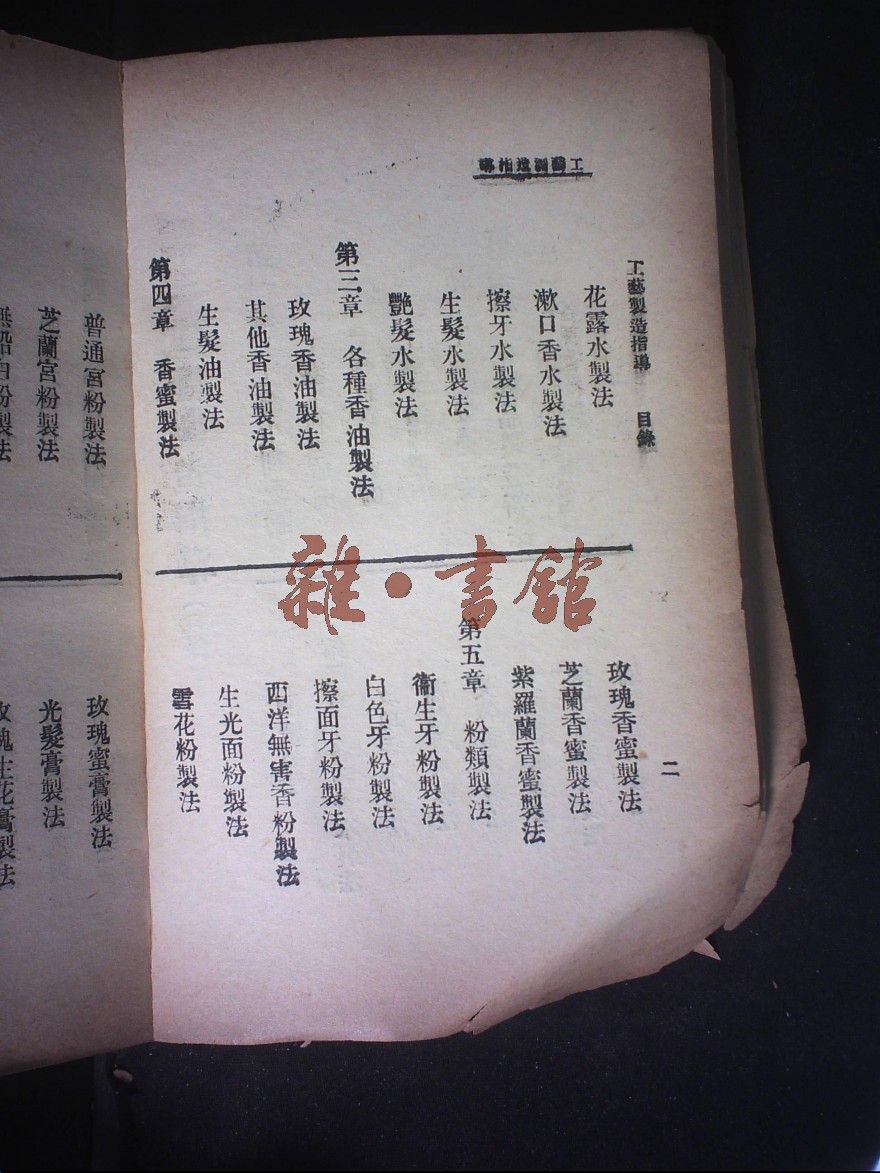 工藝製造指導
工藝製造指導 目錄
花露水製法
漱口香水製法
擦牙水製法
生髮水製法
艷髮水製法
第三章 各種香油製法
玫瑰香油製法
其他香油製法
生髮油製法
第四章 香蜜製法
二
玫瑰香蜜製法
芝蘭香蜜製法
紫羅蘭香蜜製法
第五章 粉類製法
衞生牙粉製法
白色牙粉製法
擦面牙粉製法
西洋無害香粉製法
生光面粉製法
雪花粉製法
普通宮粉製法
芝蘭宮粉製法
白粉製法
玫瑰蜜膏製法
光髮膏製法
玫瑰生花膏製法
雜·書館